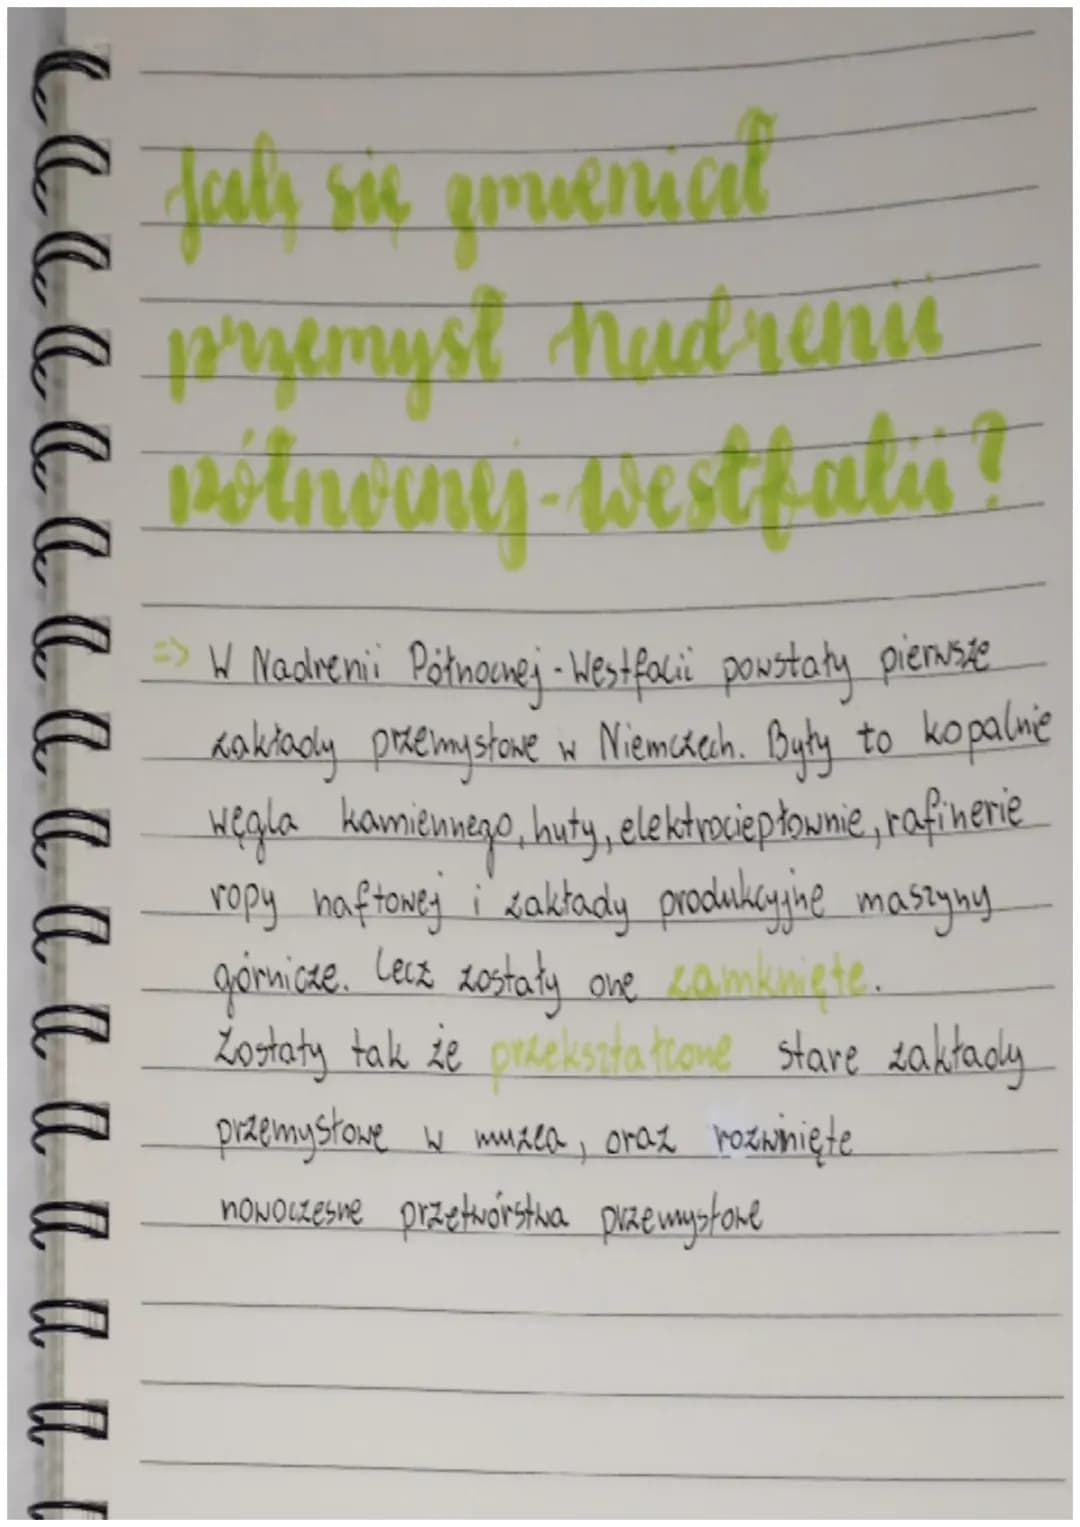 Jak się zmieniał
przemysł Nadrenii
północnej-Westfalii?
=> W Nadrenii Północnej-Westfalii powstały pierwsze
zakłady przemysłowe w Niemczech. Były to kopalnie
węgla kamiennego, huty, elektrociepłownie, rafinerie
ropy naftowej i zakłady produkcyjne maszyny
górnicze. Lecz zostały one zamknięte.
Zostały tak że przekształcone stare zakłady
przemysłowe w muzea, oraz rozwinięte
nowoczesne przetwórstwa przemysłowe